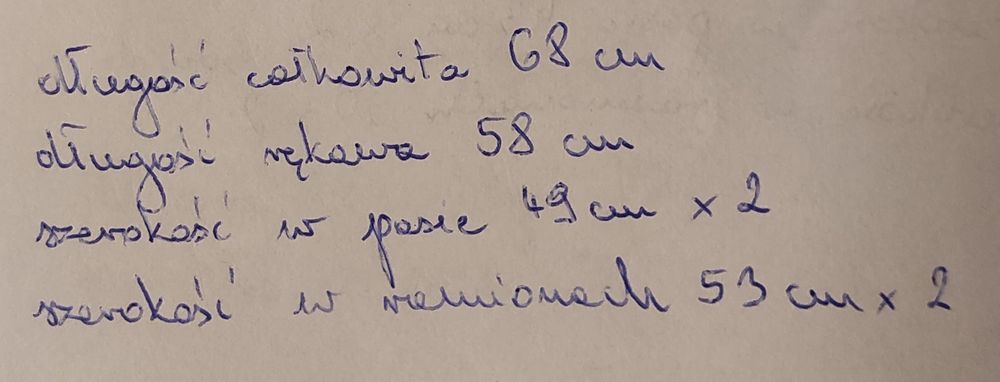 długość całkowita 68 cm
długość rękawa 58 cm
szerokość w pasie 49 cm x 2
szerokość w ramionach 53 cm x 2